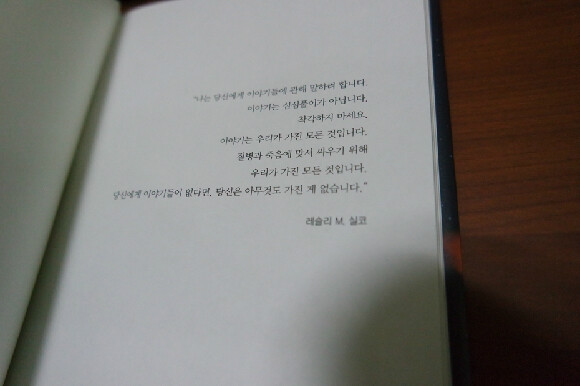 "나는 당신에게 이야기들에 관해 말하려 합니다.
이야기는 심심풀이가 아닙니다.
착각하지 마세요.
이야기는 우리가 가진 모든 것입니다.
질병과 죽음에 맞서 싸우기 위해
우리가 가진 모든 것입니다.
당신에게 이야기들이 없다면, 당신은 아무것도 가진 게 없습니다."
레슬리 M. 실코